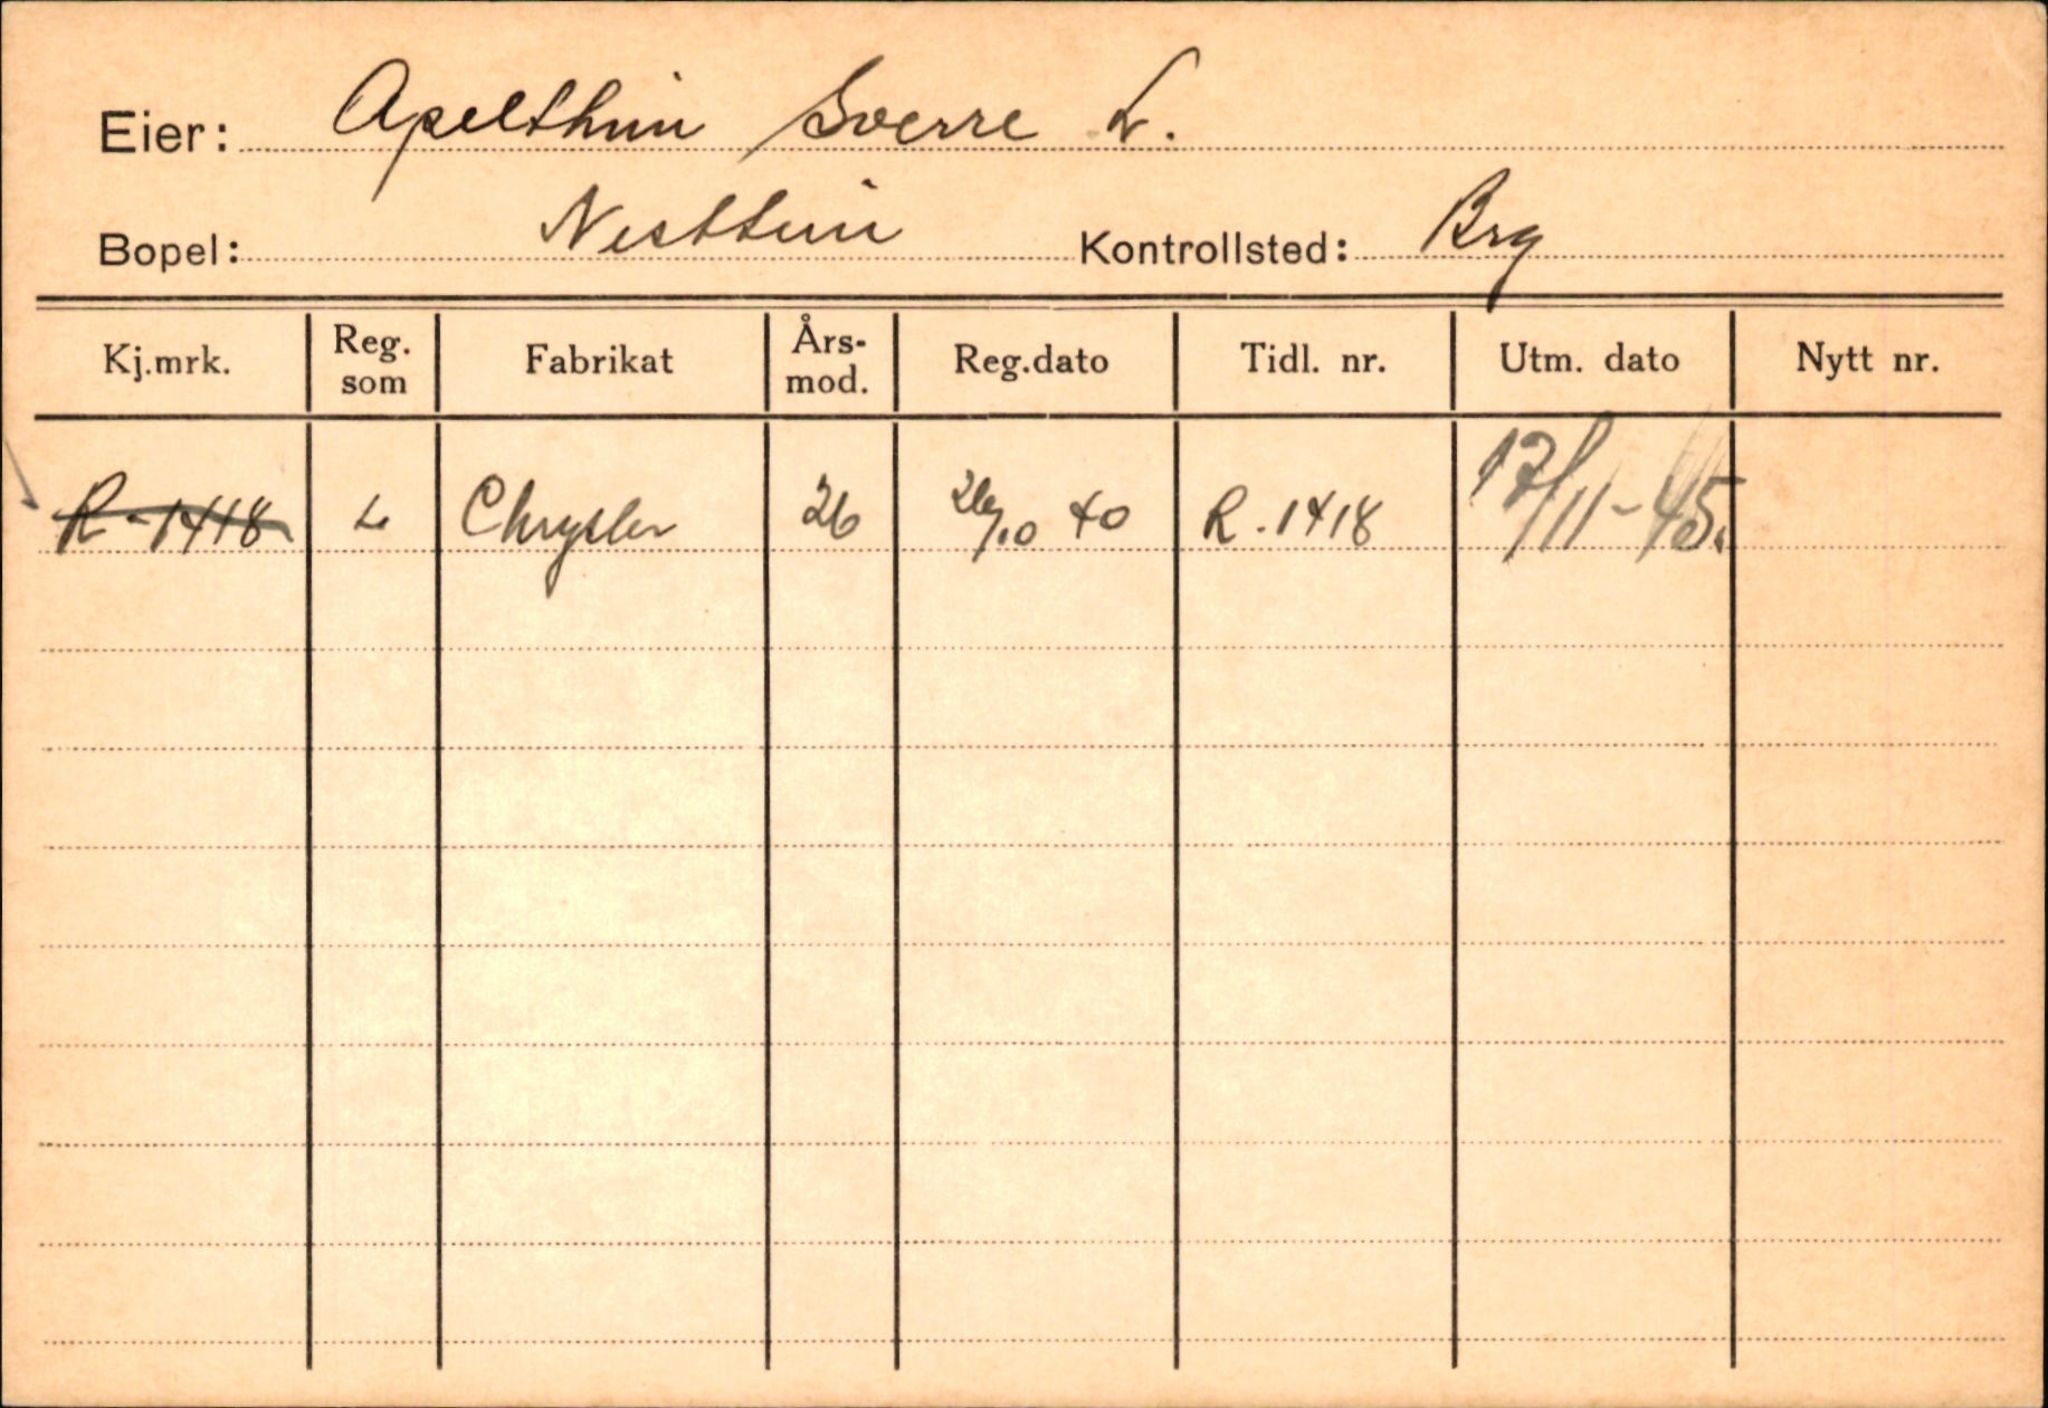 Eier: Apelthun Sverre L.
Bopel: Nesttun Kontrollsted: Brg
Kj.mrk. Reg. som Fabrikat Års-mod. Reg.dato Tidl. nr. Utm. dato Nytt nr.
R-1418 L Chrysler 26 26/10 40 R-1418 17/11-45.